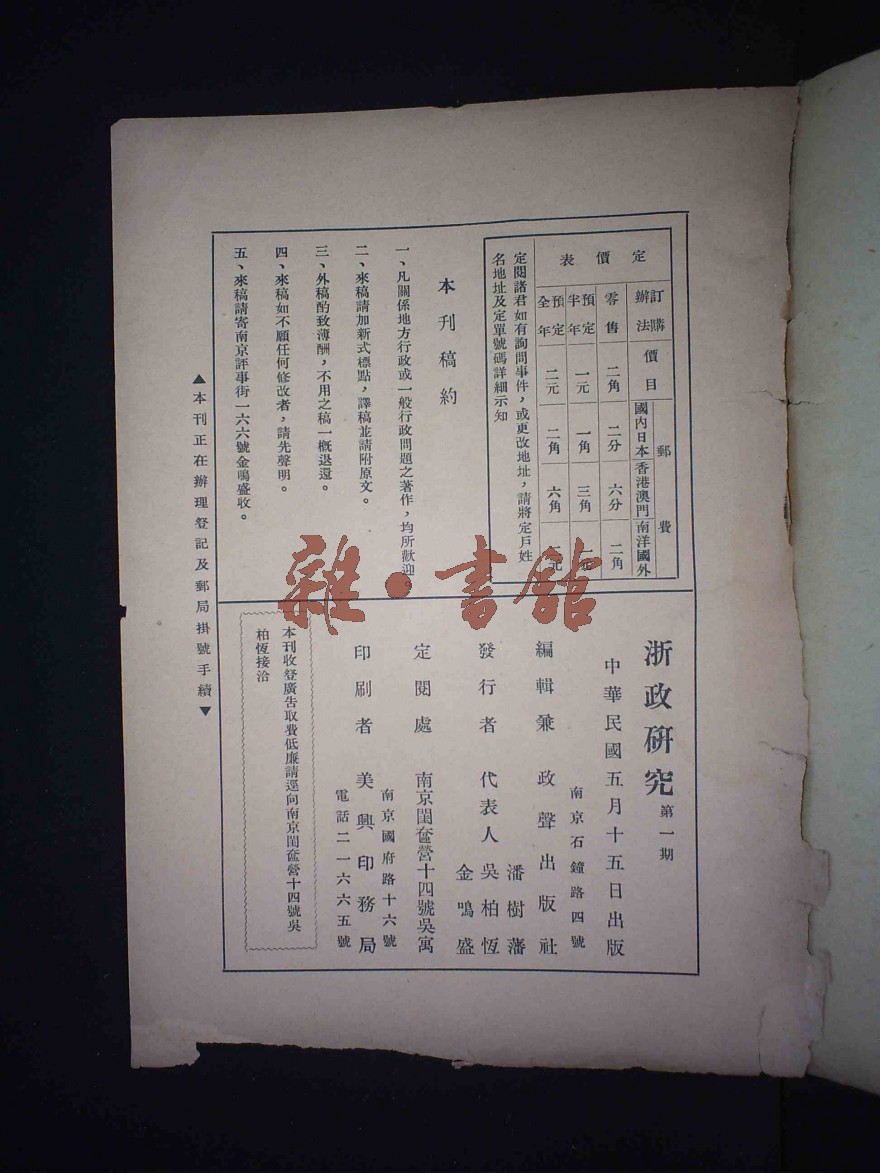 定價表
訂購辦法 價目 郵費
國內日本 香港澳門 南洋國外
零售 二角 二分 六分 二角
預定半年 一元 一角 三角 元
預定全年 二元 二角 六角 元
定閱諸君如有詢問事件，或更改地址，請將定戶姓
名地址及定單號碼詳細示知
本刊稿約
一、凡關係地方行政或一般行政問題之著作，均所歡迎。
二、來稿請加新式標點，譯稿並請附原文。
三、外稿酌致薄酬，不用之稿一概退還。
四、來稿如不願任何修改者，請先聲明。
五、來稿請寄南京評事街一六六號金鳴盛收。
浙政研究 第一期
中華民國五月十五日出版
南京石鐘路四號
編輯兼 政聲出版社
潘樹藩
發行者 代表人 吳柏恆
金鳴盛
定閱處 南京閨奩營十四號吳寓
南京國府路十六號
印刷者 美興印務局
電話二一六六五號
本刊收登廣告取費低廉請逕向南京閨奩營十四號吳
柏恆接洽
▲本刊正在辦理登記及郵局掛號手續▼
雜·書館